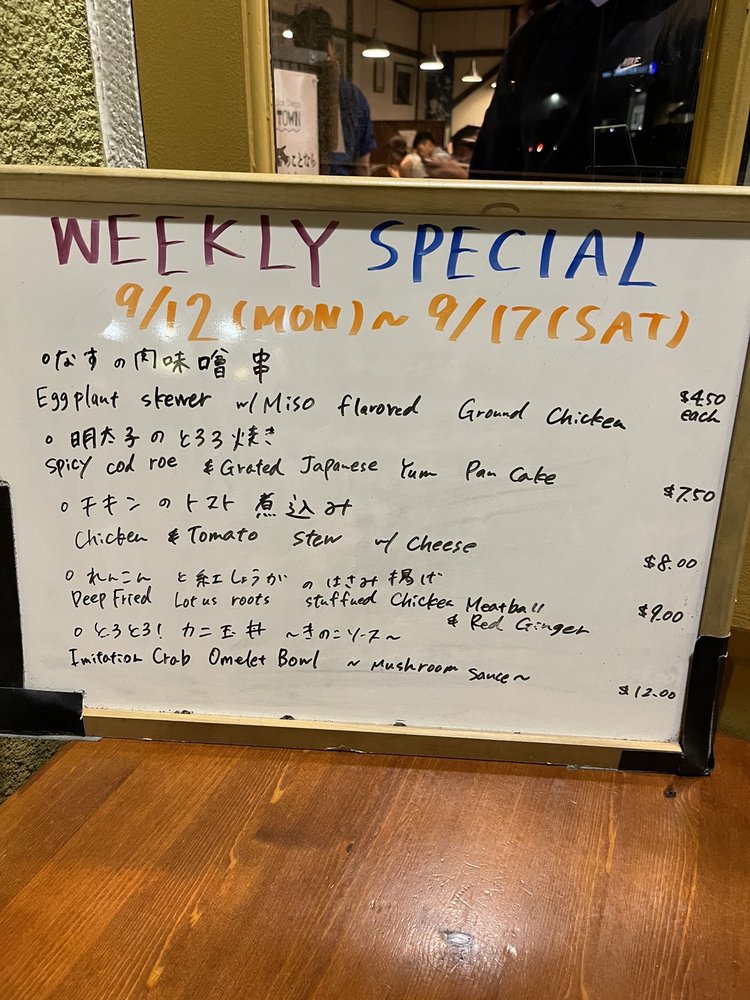 NIKE
San Diego
TOWN
のことなら
WEEKLY SPECIAL
9/12 (MON) ~ 9/17 (SAT)
○なすの肉味噌串
Eggplant skewer w/Miso flavored Ground Chicken $4.50 each
○明太子のとろろ焼き
Spicy cod roe & Grated Japanese Yum Pan Cake $7.50
○チキンのトマト煮込み
Chicken & Tomato stew w/ Cheese $8.00
○れんこんと紅しょうがのはさみ揚げ
Deep Fried Lotus roots stuffued Chicken Meatball & Red Ginger $9.00
○とろとろ!カニ玉丼 ~きのこソース~
Imitation Crab Omelet Bowl ~ Mushroom sauce ~ $12.00